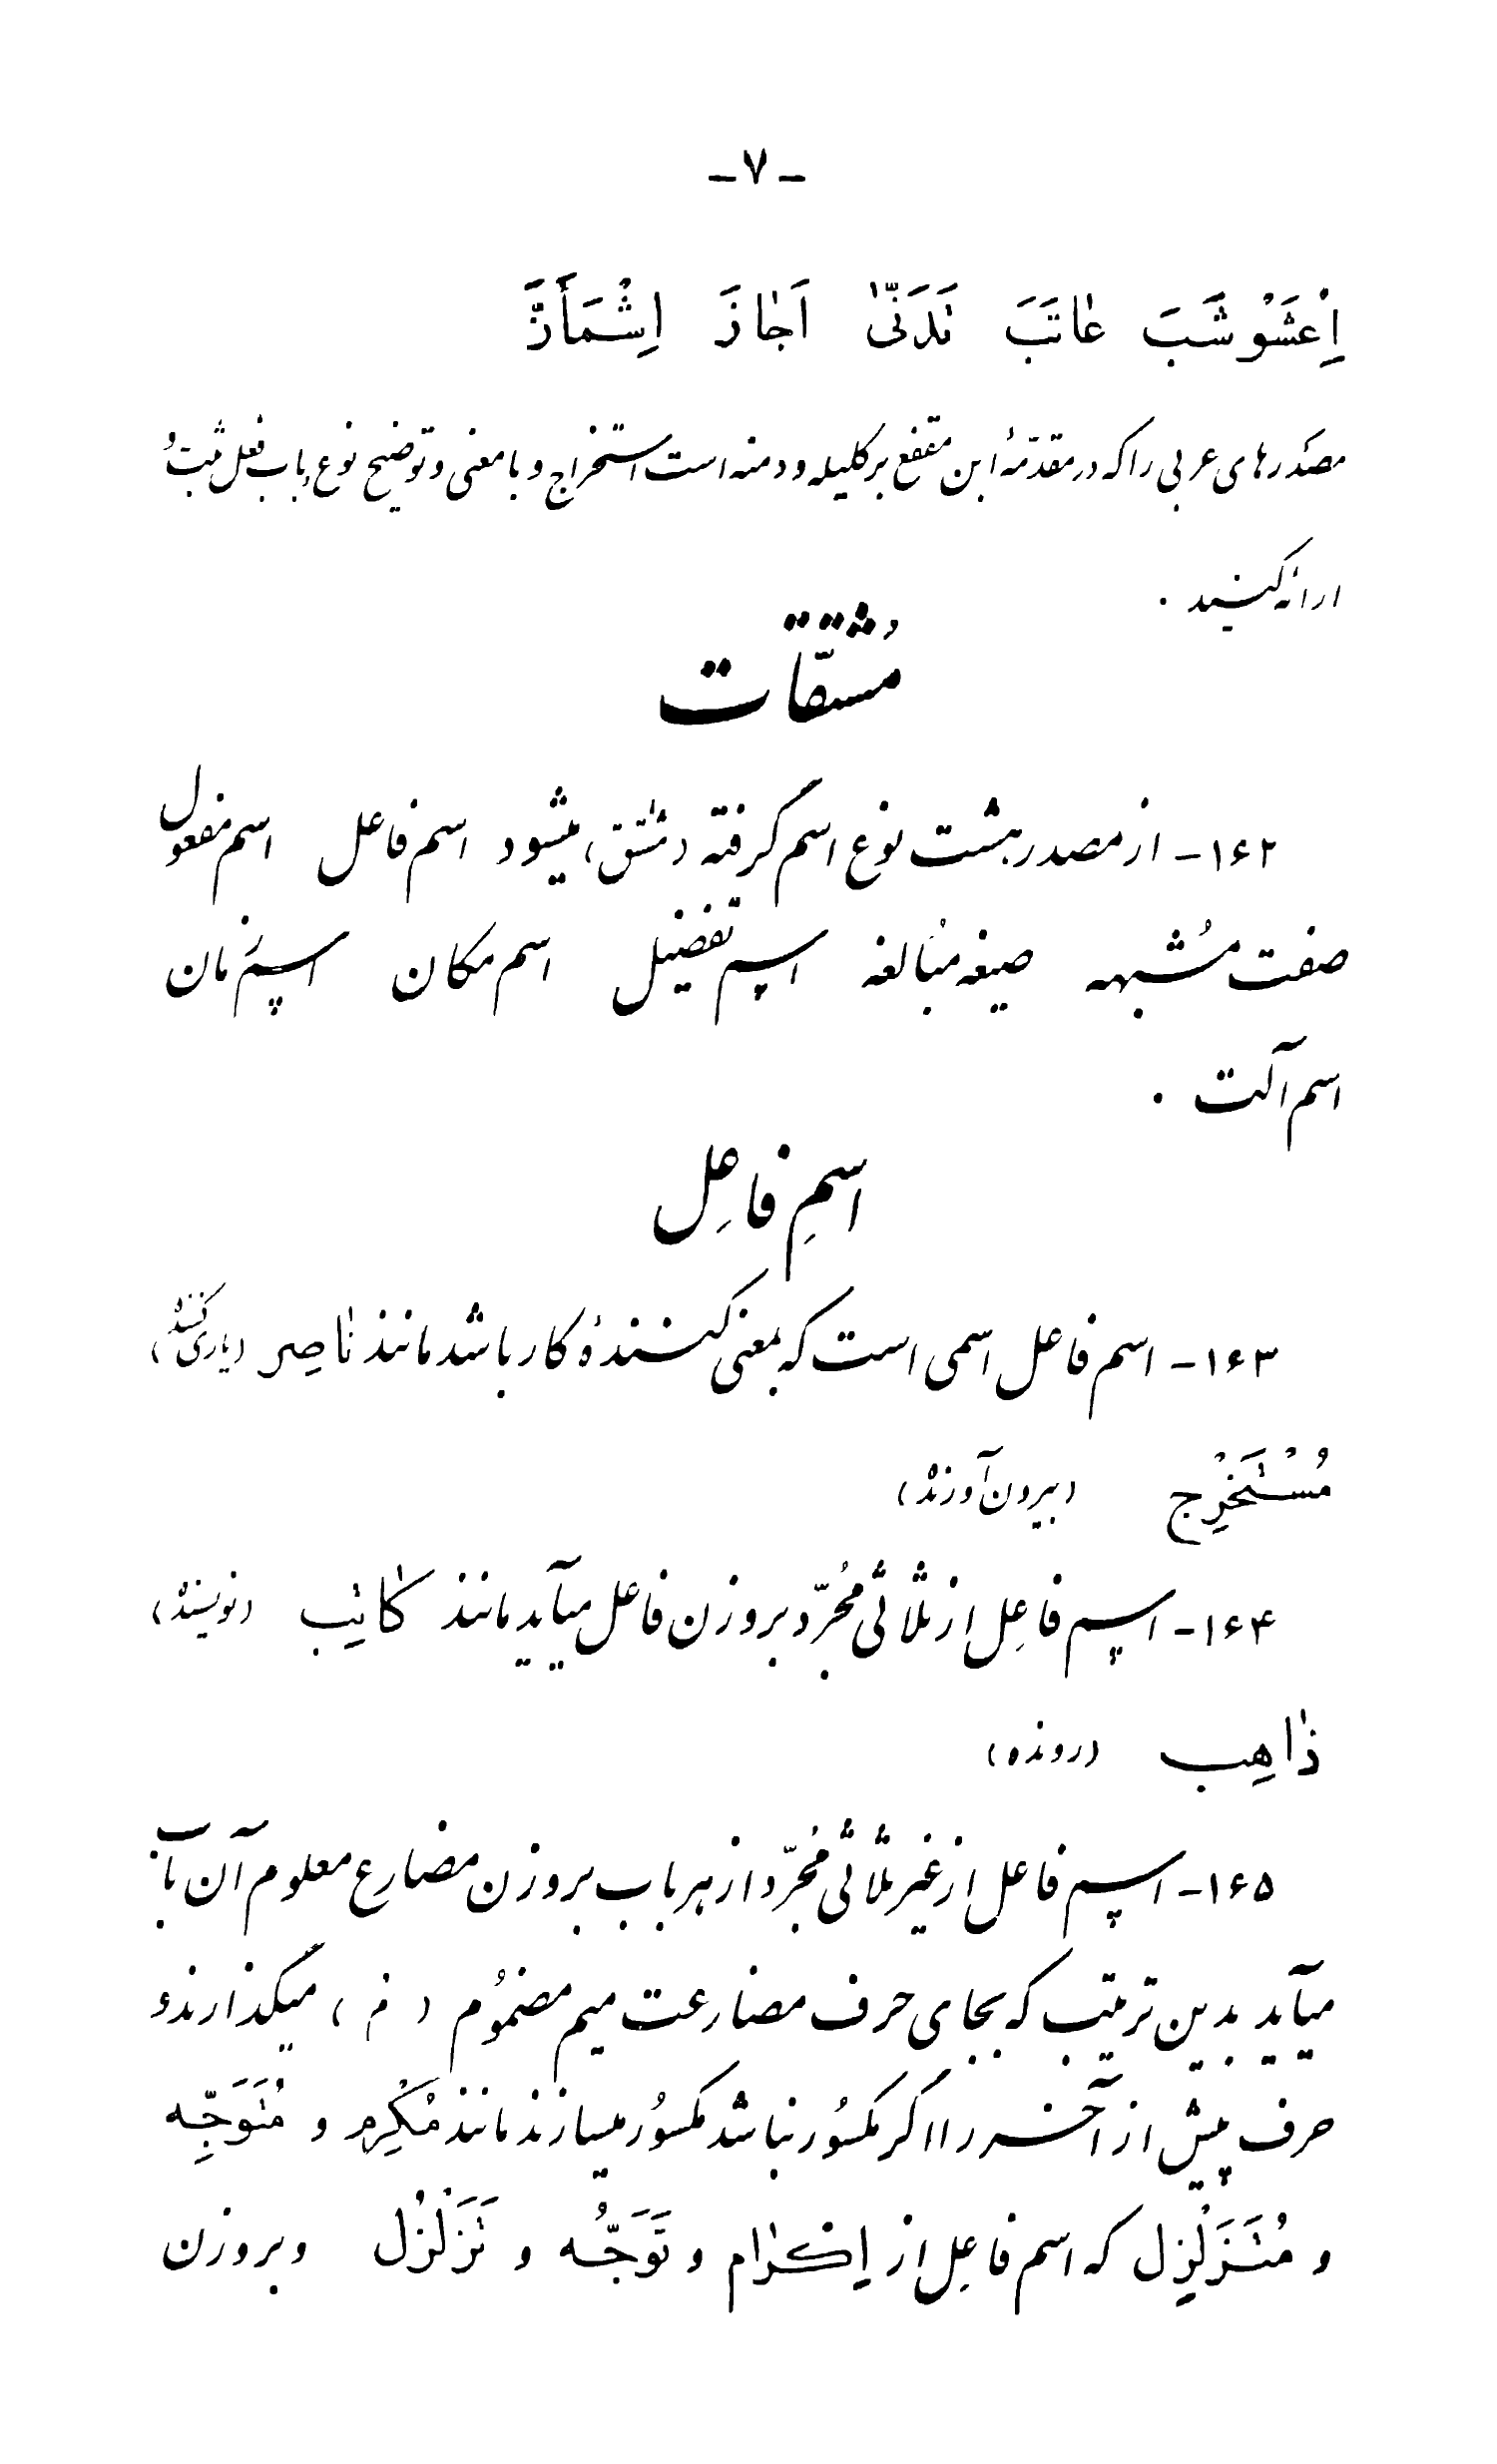 -۷-
اِعْشَوْشَبَ عٰاتَبَ تَدَنّیٰ اَجٰازَ اِشْمَأَزَّ
مصدرهای عربی را که در مقدّمهٔ ابن مقفع بر کلیله و دمنه است استخراج و با معنی و توضیح نوع باب فعل ثبت و
ارائه کنید .
مُشتقّات
۱۶۲- از مصدر هشت نوع اسم گرفته (مشتق) میشود اسم فاعل اسم مفعول
صفت مُشبهه صیغه مبالغه اسم تفضیل اسم مکان اسم زمان
اسم آلت .
اسمِ فاعِل
۱۶۳- اسم فاعل اسمی است که بمعنی کنندهٔ کار باشد مانند نٰاصِر (یاری کننده)
مُسْتَخْرِج (بیرون آورنده)
۱۶۴- اسم فاعِل از ثلاثی مُجرّد بر وزن فاعل میآید مانند کٰاتِب (نویسنده)
ذٰاهِب (رونده)
۱۶۵- اسم فاعل از غیر ثلاثی مُجرّد از هر باب بر وزن مضارع معلوم آن باب
میآید بدین ترتیب که بجای حرف مضارعت میم مضمُوم (مُ) میگذارند و
حرف پیش از آخر را اگر مکسُور نباشد مکسُور میسازند مانند مُکْرِم و مُتَوَجِّه
و مُتَزَلْزِل که اسم فاعِل از اِکْرٰام و تَوَجُّه و تَزَلْزُل و بروزن